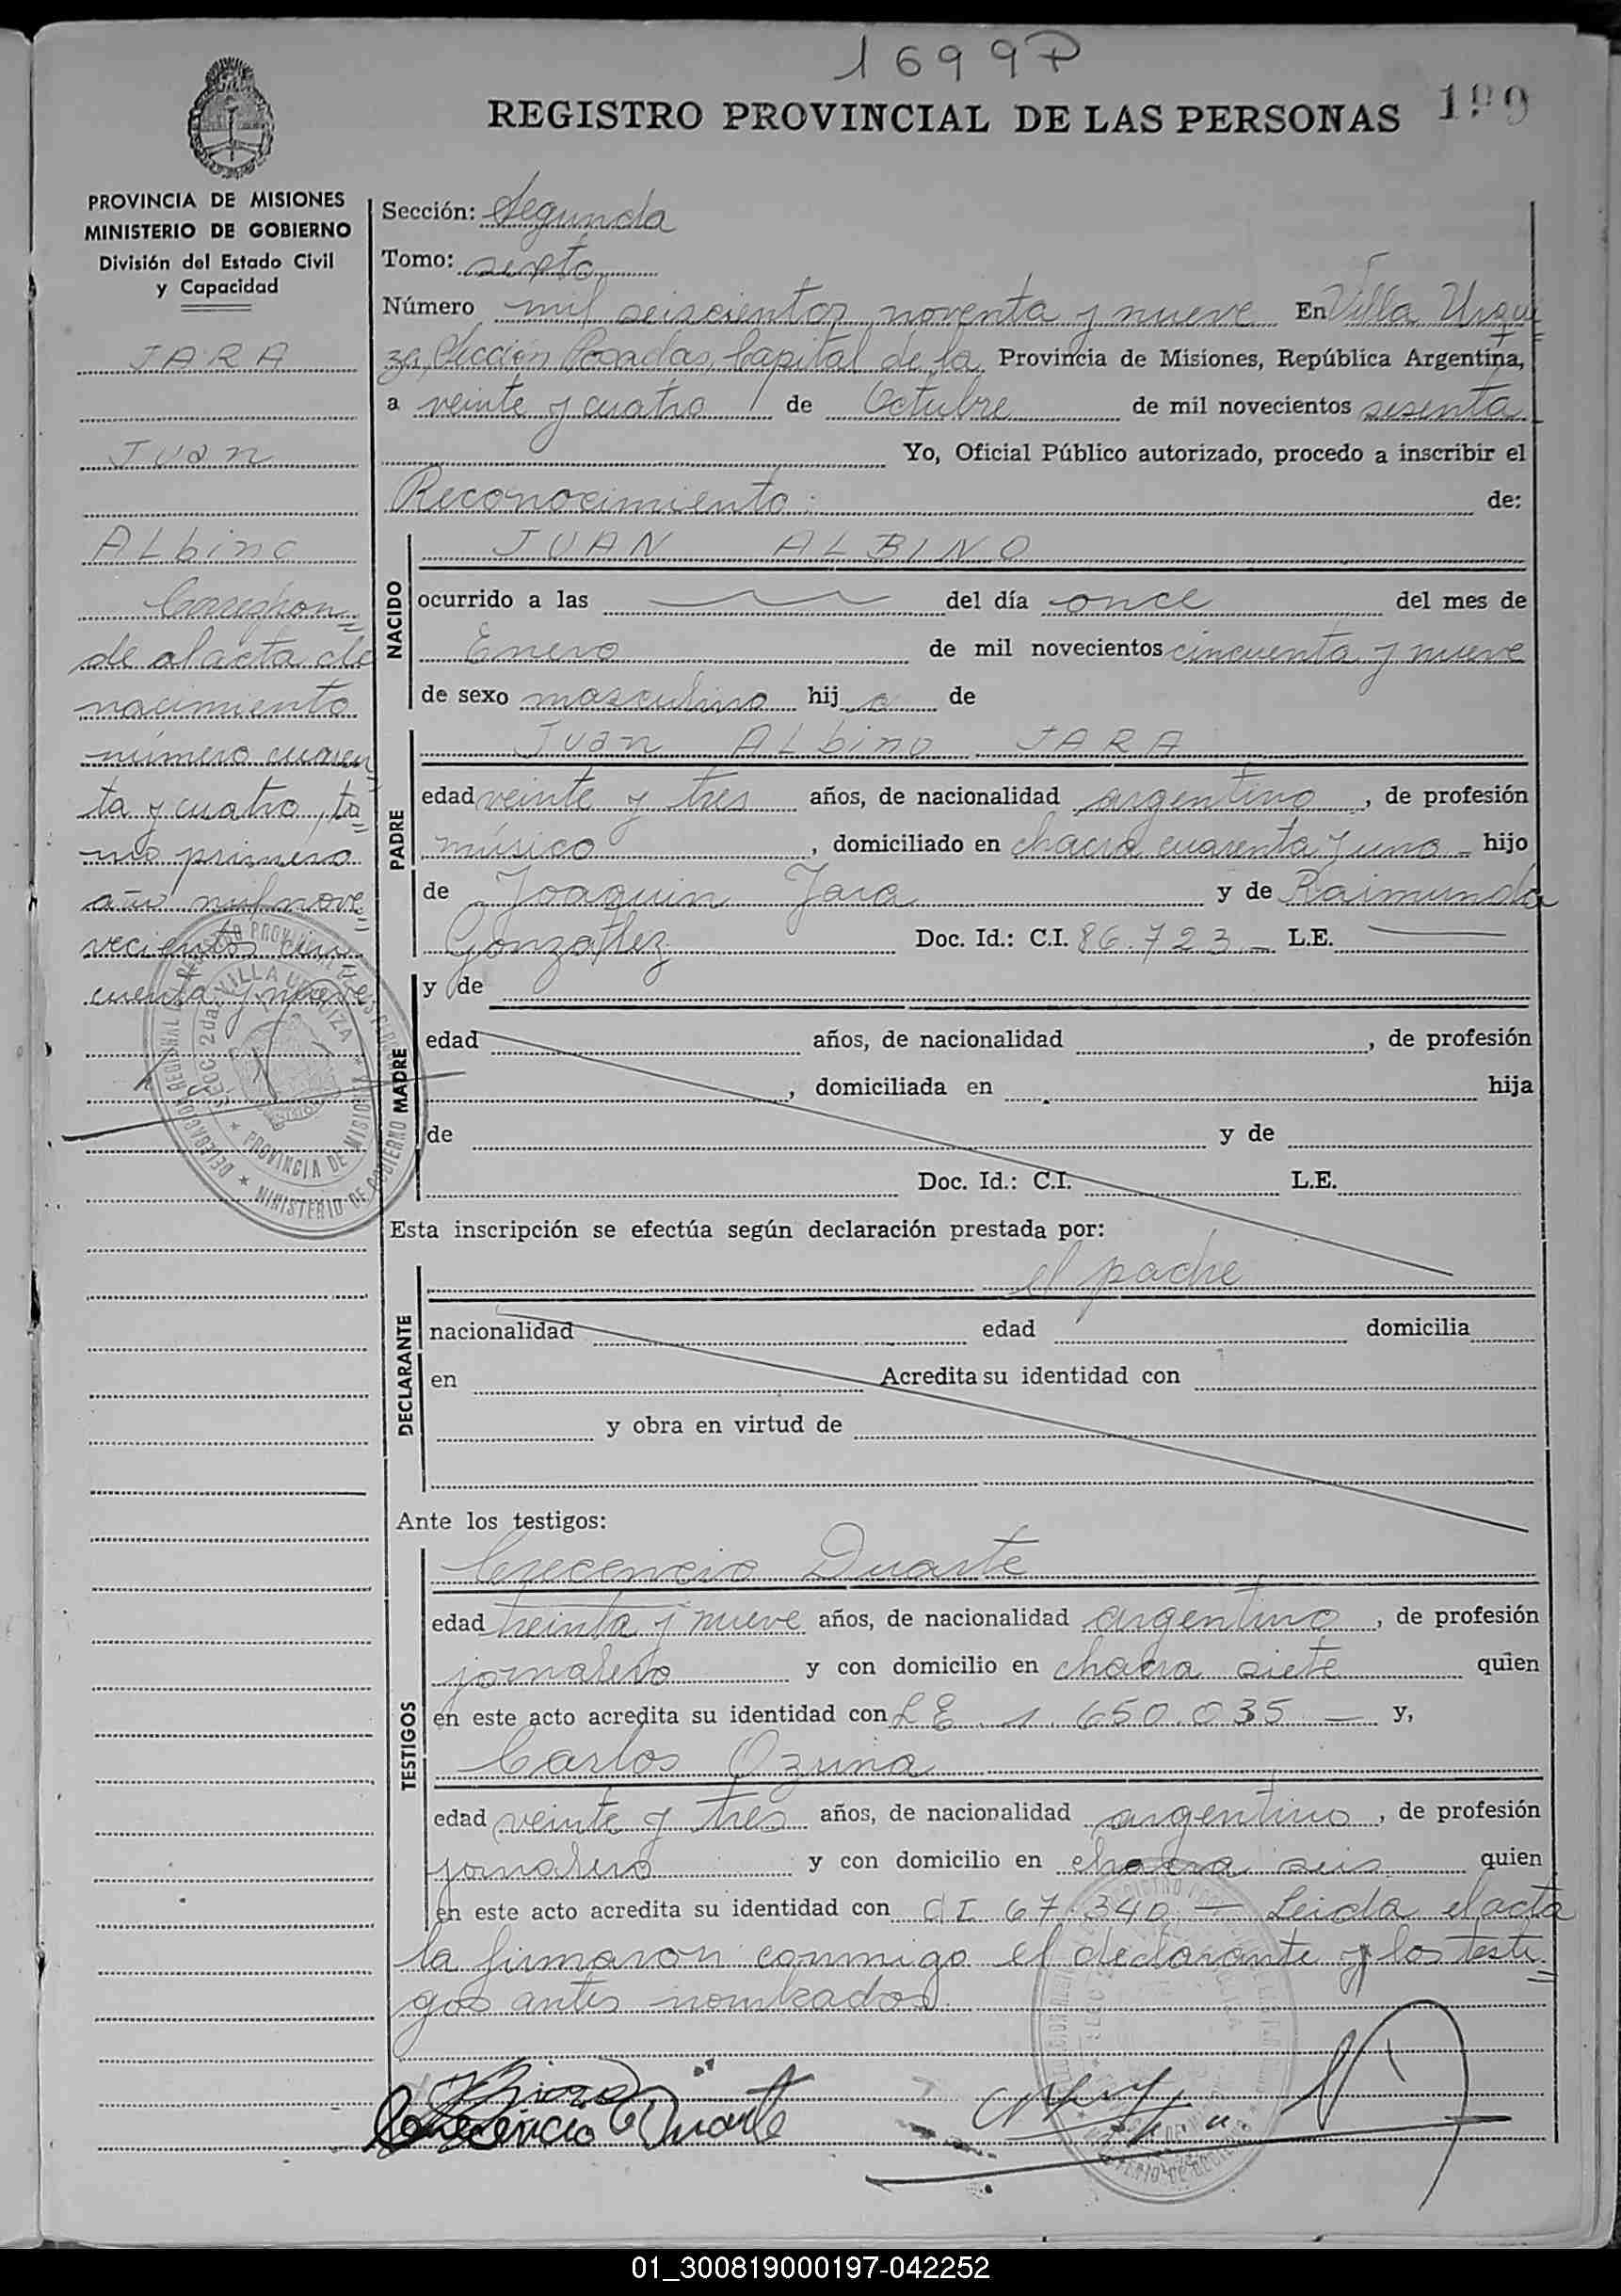 1699 P
REGISTRO PROVINCIAL DE LAS PERSONAS 199
PROVINCIA DE MISIONES
MINISTERIO DE GOBIERNO
División del Estado Civil
y Capacidad
JARA
Juan
ALbino
Correspon=
de al acta de
nacimiento
número cuaren=
ta y cuatro, to=
mo primero
año mil nove=
vecientos cin=
cuenta y nueve
Sección: Segunda
Tomo: sexto
Número mil seiscientos noventa y nueve En Villa Urqui=
za, Sección Posadas, Capital de la Provincia de Misiones, República Argentina,
a veinte y cuatro de Octubre de mil novecientos sesenta
Yo, Oficial Público autorizado, procedo a inscribir el
Reconocimiento: de:
NACIDO
JUAN ALBINO
ocurrido a las del día once del mes de
Enero de mil novecientos cincuenta y nueve
de sexo masculino hijo de
PADRE
Juan ALbino JARA
edad veinte y tres años, de nacionalidad argentino, de profesión
músico, domiciliado en chacra cuarenta y uno hijo
de Joaquin Jara y de Raimunda
Gonzalez Doc. Id.: C.I. 86.723.– L.E. —
MADRE
y de
edad años, de nacionalidad , de profesión
, domiciliada en hija
de y de
Doc. Id.: C.I. L.E.
Esta inscripción se efectúa según declaración prestada por:
DECLARANTE
el padre
nacionalidad edad domicilia
en Acredita su identidad con
y obra en virtud de
Ante los testigos:
TESTIGOS
Crecencio Duarte
edad treinta y nueve años, de nacionalidad argentino, de profesión
jornalero y con domicilio en chacra siete quien
en este acto acredita su identidad con LE 1.650.035 — y,
Carlos Ozuna
edad veinte y tres años, de nacionalidad argentino, de profesión
jornalero y con domicilio en chacra seis quien
en este acto acredita su identidad con CI 67.340 — Leida el acta
la firmaron conmigo el declarante y los testi=
gos antes nombrados.
Crecencio Duarte
SECC 2da VILLA URQUIZA
PROVINCIA DE MISIONES
MINISTERIO DE GOBIERNO
01_300819000197-042252